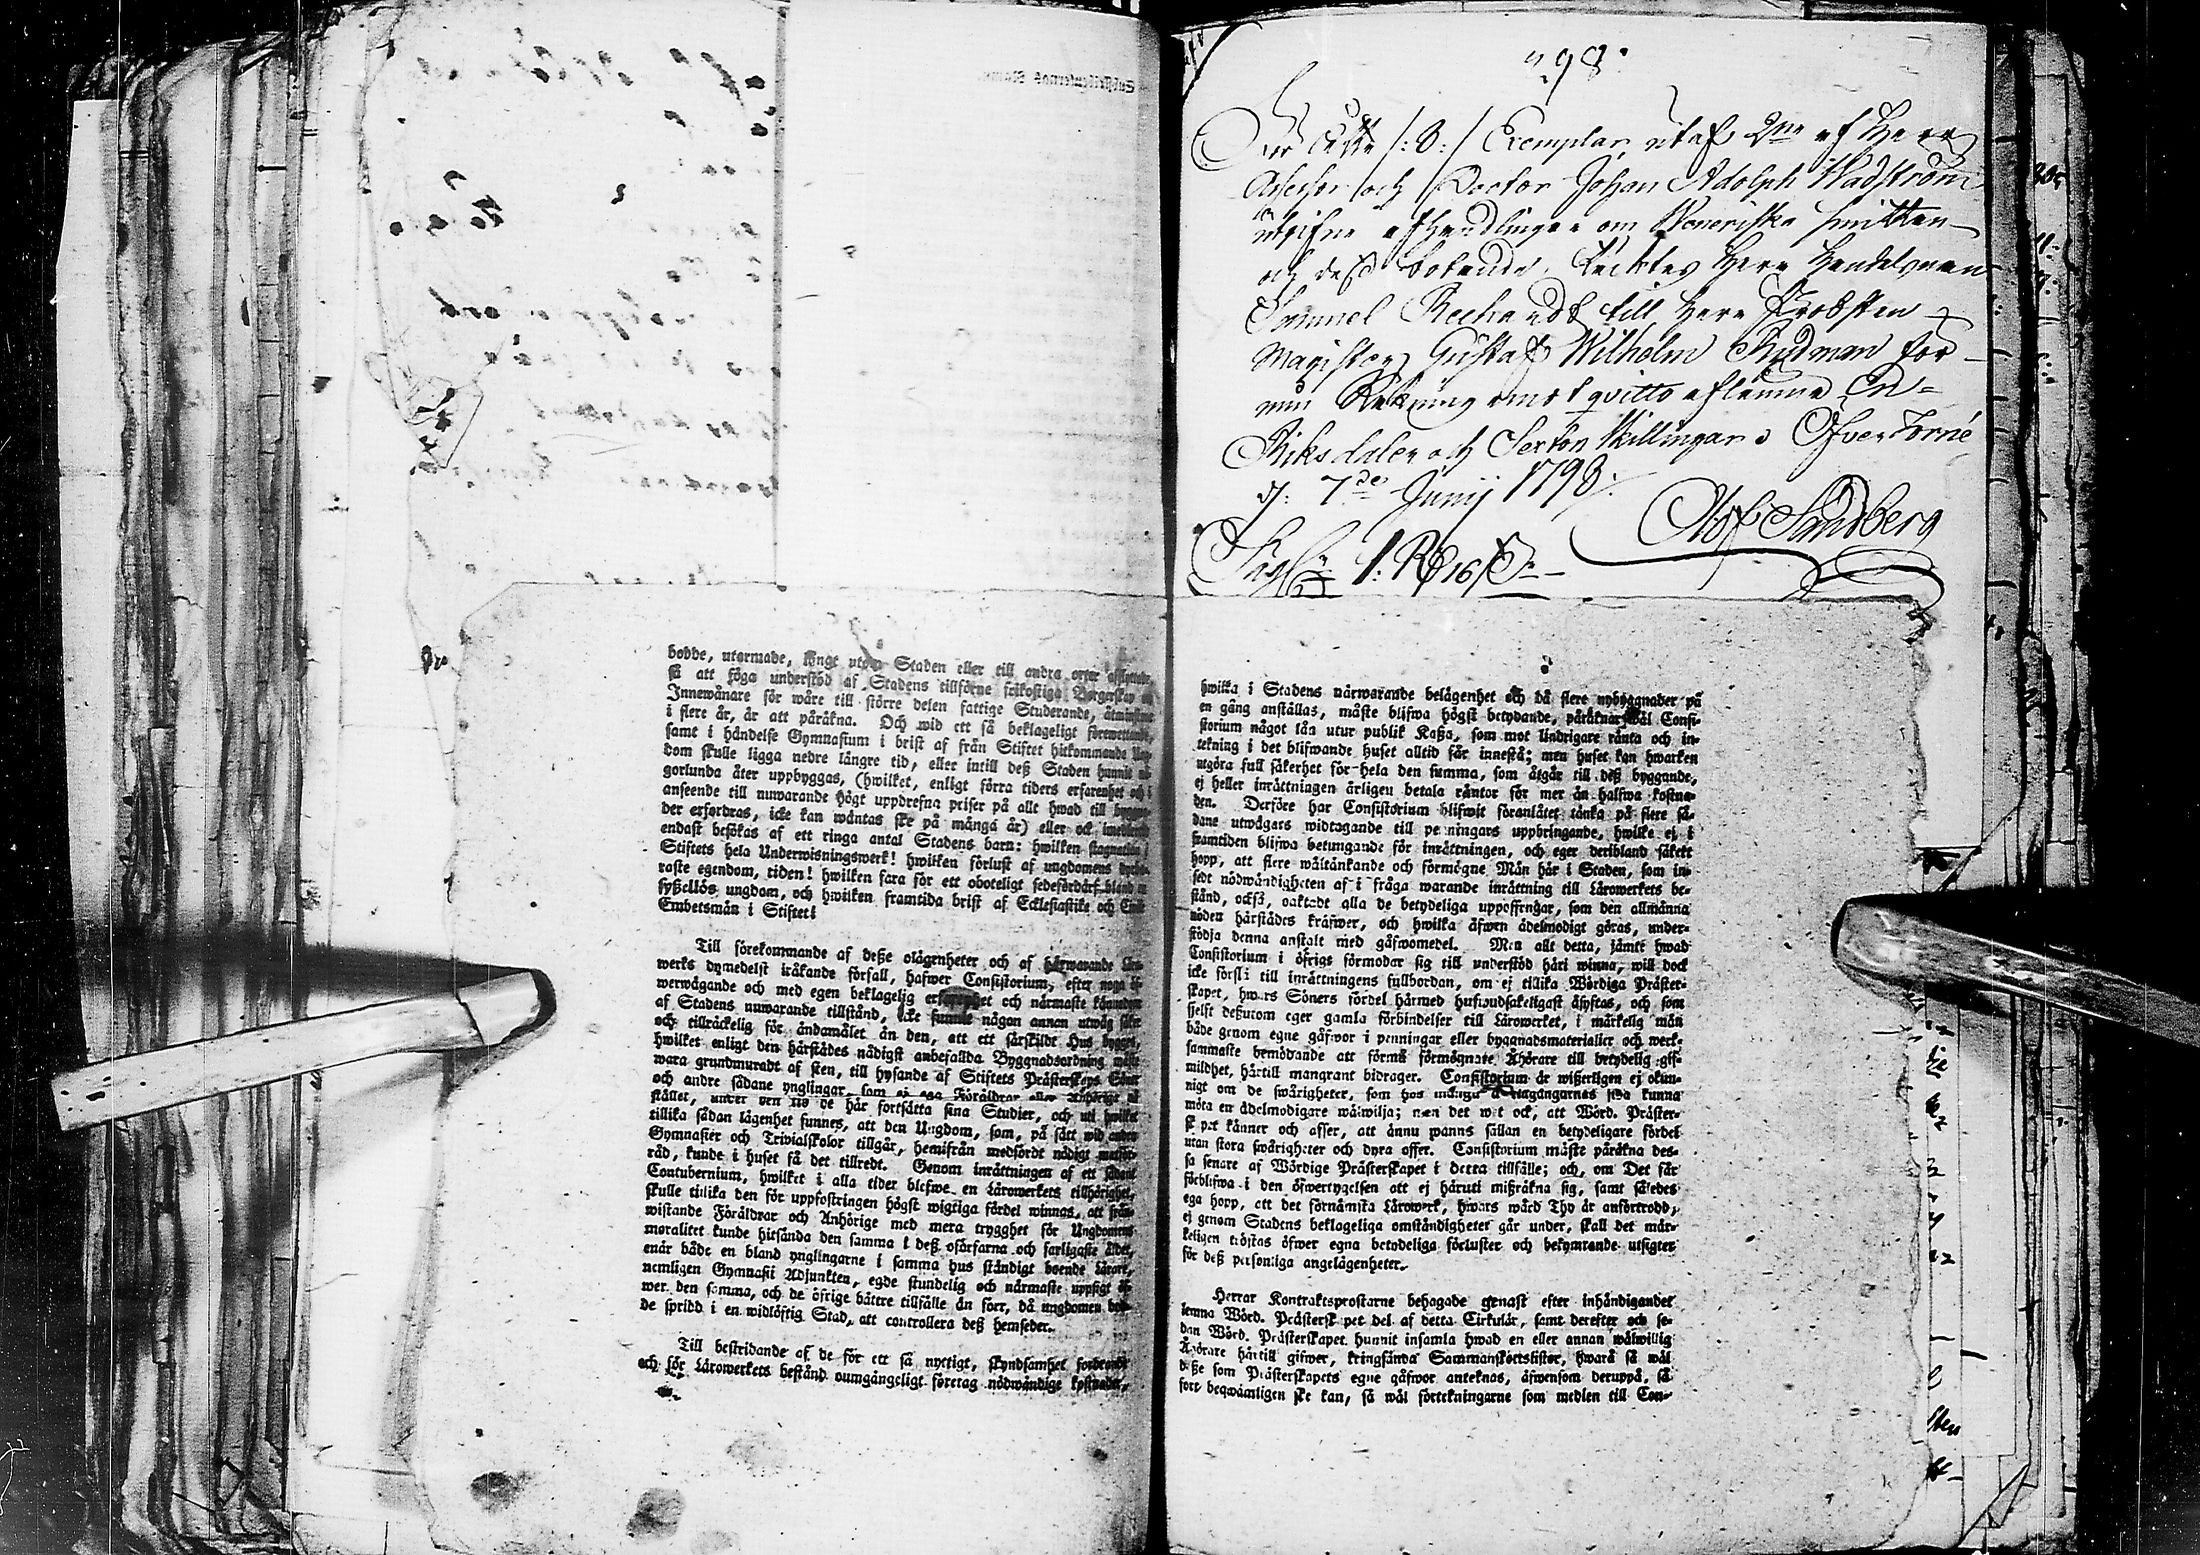 Subskribenternas Namn.
bodde, utarmade, långt utom Staden eller till andra orter afflyttade,
så att föga understöd af Stadens tillförne frikostiga Borgerskap och
Innewånare för wåre till större delen fattige Studerande, åtminstone
i flere år, är att påräkna. Och wid ett så beklageligt förewettande,
samt i händelse Gymnasium i brist af från Stiftet hitkommande Ung-
dom skulle ligga nedre längre tid, eller intill deß Staden hunnit nå-
gorlunda åter uppbyggas, (hwilket, enligt förra tiders erfarenhet och i
anseende till nuwarande högt uppdrefna priser på allt hwad till byggna-
der erfordras, icke kan wäntas ske på många år) eller ock imedlertid
endast besökas af ett ringa antal Stadens barn: hwilken stagnation i
Stiftets hela Underwisningswerk! hwilken förlust af ungdomens dyrba-
raste egendom, tiden! hwilken fara för ett oboteligt sedeförderf bland en
syßellös ungdom, och hwilken framtida brist af Ecklesiastike och Civile
Embetsmän i Stiftet!
Till förekommande af deße olägenheter och af härwarande Läro-
werks dymedelst iråkande förfall, hafwer Consistorium, efter noga öf-
werwägande och med egen beklagelig erfarenhet och närmaste kännedom
af Stadens nuwarande tillstånd, icke funnit någon annan utwäg säker
och tillräckelig för ändamålet än den, att ett särskildt Hus bygges,
hwilket enligt den härstädes nådigst anbefallda Byggnadsordning måste
wara grundmuradt af sten, till hysande af Stiftets Prästerskaps Söner
och andre sådane ynglingar, som ej ega Föräldrar eller Anhörige på
stället, under den tid de här fortsätta sina Studier, och uti hwilket
tillika sådan lägenhet funnes, att den Ungdom, som, på sätt wid andra
Gymnasier och Trivialskolor tillgår, hemifrån medfördt nödigt matför-
råd, kunde i huset få det tillredt. Genom inrättningen af ett sådant
Contubernium, hwilket i alla tider blefwe en Lärowerkets tillhörighet,
skulle tillika den för uppfostringen högst wigtiga fördel winnas, att från-
wistande Föräldrar och Anhörige med mera trygghet för Ungdomens
moralitet kunde hitsända den samma i deß oförfarna och farligaste ålder,
enär både en bland ynglingarne i samma hus ständigt boende Lärare,
nemligen Gymnasii Adjunkten, egde stundelig och närmaste uppsigt öf-
wer den samma, och de öfrige bättre tillfälle än förr, då ungdomen bod-
de spridd i en widlöftig Stad, att controllera deß hemseder.
Till bestridande af de för ett så nyttigt, skyndsamhet fordrande
och för Lärowerkets bestånd oumgängeligt företag nödwändige kostnader,
298.
För Otta /:8:/ Exemplar utaf 2ne af Herr
Assessor och Doctor Johan Adolph Wadström
utgifne afhandlingar om Veneriska smittan
och deß botande, Käcktes Herr Handelsman
Samuel till Herr Probsten
Magister Gustaf Wilhelm Rudman för
min Räkning emot qvitto aflemna En
Riksdaler och Sexton Skillingar; Öfver Torneå
d: 7de Junij 1798:
Olof Sandberg
1: Rd 16 ß
hwilka i Stadens närwarande belägenhet och då flere nybyggnader på
en gång anställas, måste blifwa högst betydande, påräknar wäl Consi-
storium något lån utur publik Kaßa, som mot lindrigare ränta och in-
tekning i det blifwande huset alltid får innestå; men huset kan hwarken
utgöra full säkerhet för hela den summa, som åtgår till deß byggande,
ej heller inrättningen årligen betala räntor för mer än halfwa kostna-
den. Derföre har Consistorium blifwit föranlåtet tänka på flere så-
dane utwägars widtagande till penningars uppbringande, hwilka ej i
framtiden blifwa betungande för inrättningen, och eger deribland säkert
hopp, att flere wältänkande och förmögne Män här i Staden, som in-
sedt nödwändigheten af i fråga warande inrättning till Lärowerkets be-
stånd, också, oaktadt alla de betydeliga uppoffringar, som den allmänna
nöden härstädes kräfwer, och hwilka äfwen ädelmodigt göras, under-
stödja denna anstalt med gåfwomedel. Men allt detta, jämte hwad
Consistorium i öfrigt förmodar sig till understöd häri winna, will dock
icke förslå till inrättningens fullbordan, om ej tillika Wördiga Präster-
skapet, hwars Söners fördel härmed hufwudsakeligast åsyftas, och som
sjelft deßutom eger gamla förbindelser till Lärowerket, i märkelig mån
både genom egne gåfwor i penningar eller byggnadsmaterialier och werk-
sammaste bemödande att förmå förmögnare Åhörare till betydelig gif-
mildhet, härtill mangrant bidrager. Consistorium är wißerligen ej okun-
nigt om de swårigheter, som hos många deltagningarnes sida kunna
möta en ädelmodigare wälwilja; men det wet ock, att Wörd. Präster-
skapet känner och asser, att ännu wanns sällan en betydeligare fördel
utan stora swårigheter och dyra offer. Consistorium måste påräkna des-
sa senare af Wördige Prästerskapet i detta tillfälle; och, om Det får
förblifwa i den öfwertygelsen att ej häruti mißräkna sig, samt således
ega hopp, att det förnämsta Lärowerk, hwars wård Thy är anförtrodd,
ej genom Stadens beklageliga omständigheter går under, skall det mär-
keligen tröstas öfwer egna betydeliga förluster och bekymrande utsigter
för deß personliga angelägenheter.
Herrar Kontraktsprostarne behagade genast efter inhändigandet
lemna Wörd. Prästerskapet del af detta Cirkulär, samt derefter och se-
dan Wörd. Prästerskapet hunnit insamla hwad en eller annan wälwillig
Åhörare härtill gifwer, kringsända Sammanskottslistor, hwarå så wäl
deße som Prästerskapets egne gåfwor anteknas, äfwensom deruppå, så
fort beqwämligen ske kan, så wäl förtekningarne som medlen till Con-